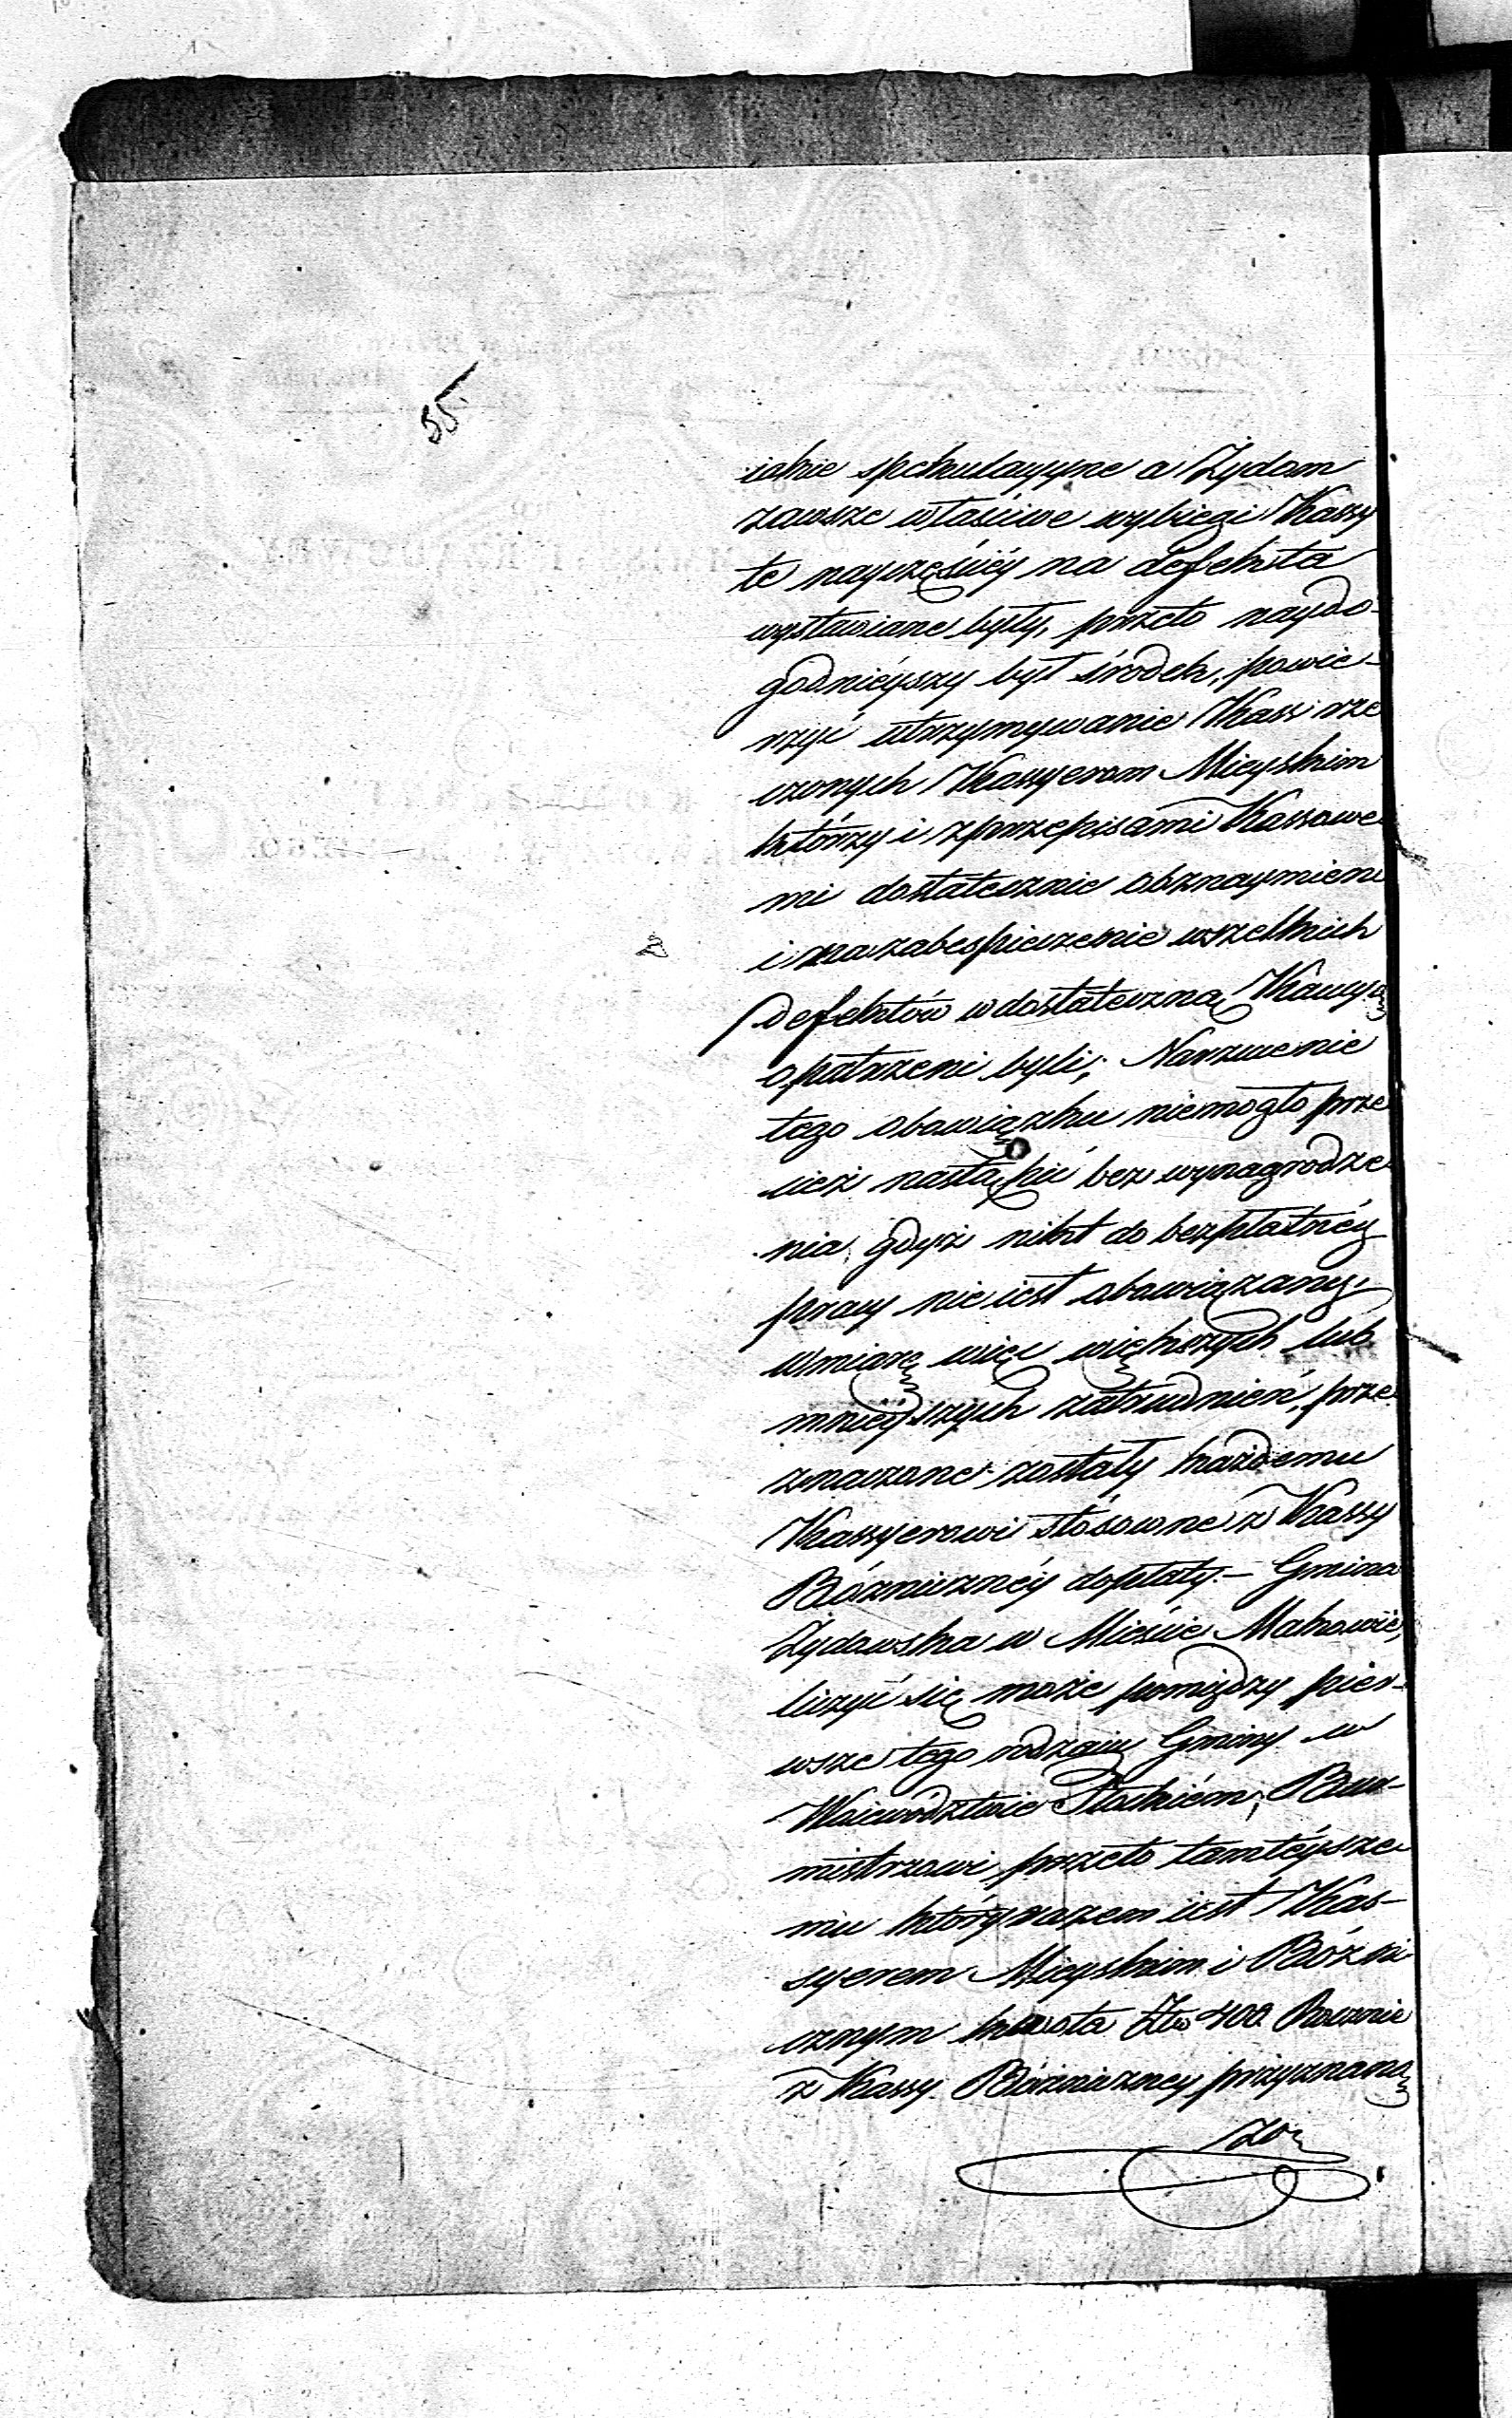 55
iakie spekulacyyne a Żydom
zawsze właściwe wybiegi Kassy
te nayczęściéy na defekta
wystawiane były, przeto naydo-
godnieyszy był środek, powie-
rzyć utrzymywanie Kass rze
czonych Kassyerom Mieyskim
którzy i z przepisami Kassowe
mi dostatecznie obznaymieni
i na zabespieczenie wszelkich
Defektów w dostateczną Kaucyą
opatrzeni byli; Narzucenie
tego obowiązku niemogło prze
cież nastąpić bez wynagrodze
nia, gdyż nikt do bezpłatnéy
pracy nie iest obowiązany,
w miarę więc większych lub
mnieyszych zatrudnień, prze
znaczone zostały każdemu
Kassyerowi stósowne z Kassy
Bóżnicznéy dopłaty. – Gmina
Żydowska w Mieście Makowie,
liczyć się może pomiędzy pier-
wsze tego rodzaiu Gminy w
Woiewództwie Płockiém, Bur-
mistrzowi przeto tamtéysze
mu który razem iest Kas-
syerem Mieyskim i Bóżni
cznym kwota Złp 400 Rocznie
z Kassy Bóżniczney przyznaną
zo